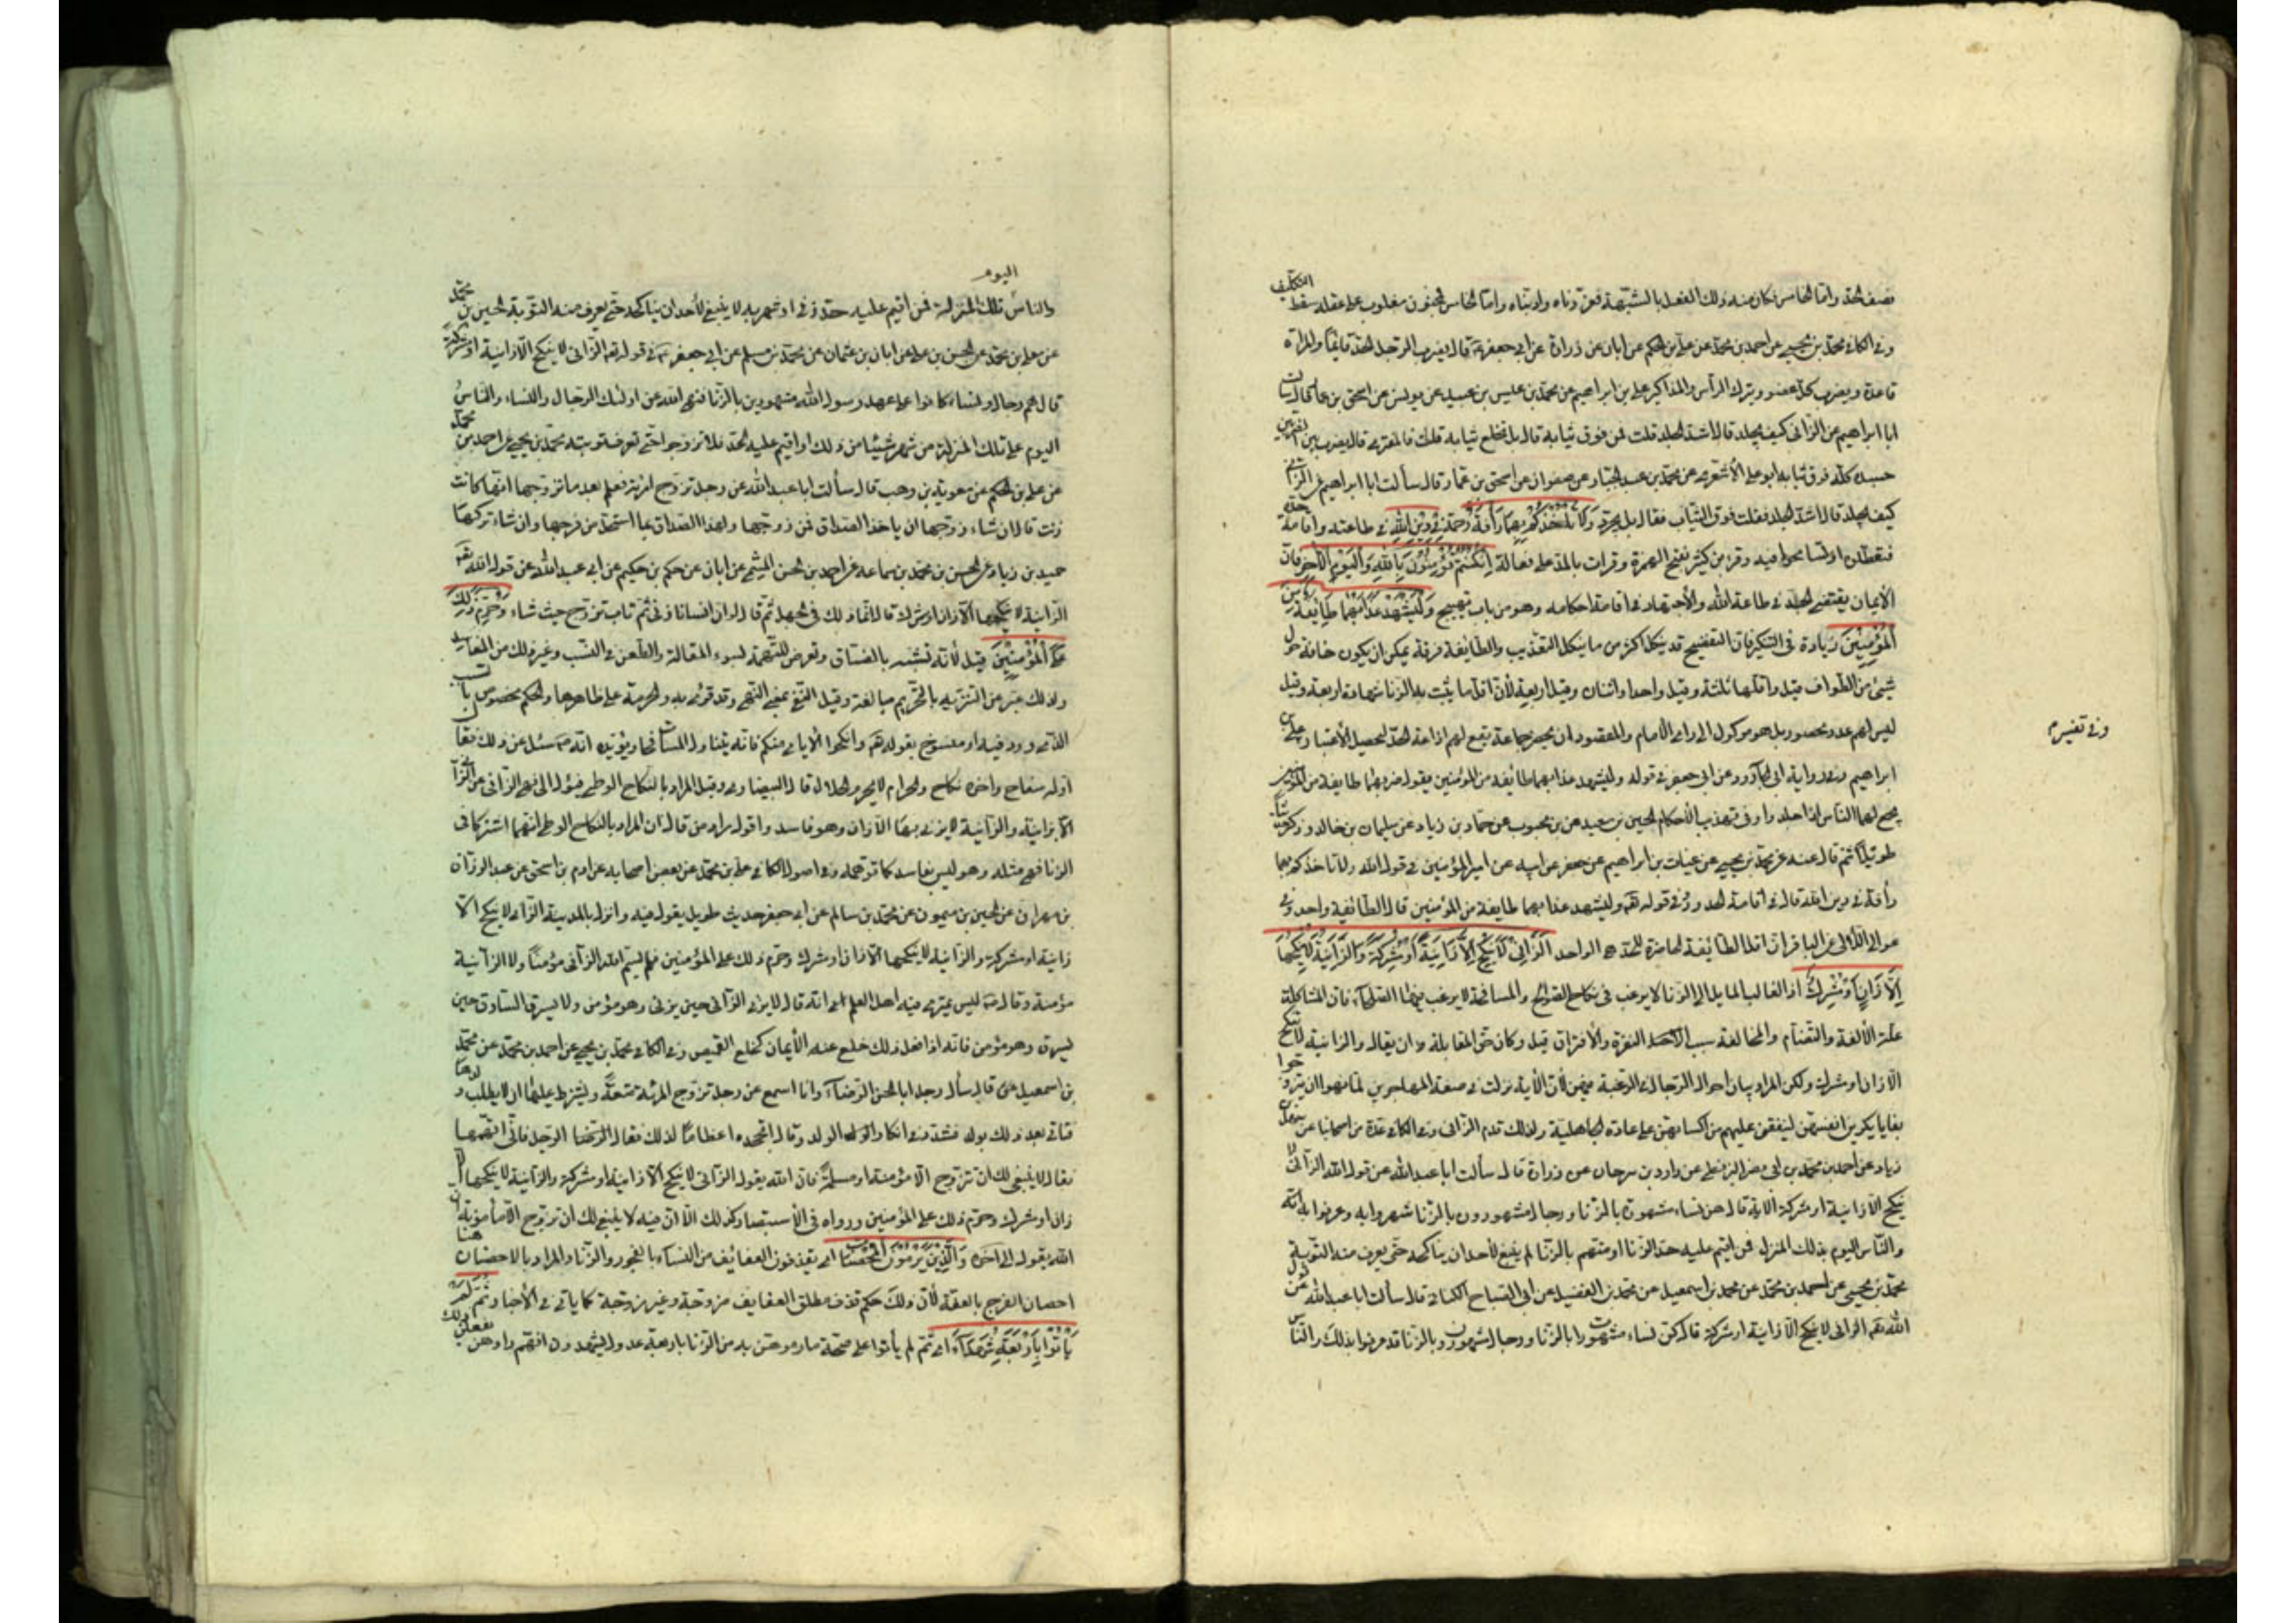 نصف الحد واما الخامس فكان منه ذلك الفعل بالشبهة فعزرناه وادبناه واما الخامس فمجنون مغلوب على عقله سقط التكليف
وفي الكافي محمد بن يحيى عن احمد بن محمد عن علي بن الحكم عن ابان عن زرارة عن ابي جعفر قال يضرب الرجل الحد قائما والمراة
قاعدة ويضرب كل عضو ويترك الرأس والمذاكير علي بن ابراهيم عن محمد بن عيسى بن عبيد عن يونس عن اسحق بن عمار قال سألت
ابا ابراهيم عن الزاني كيف يجلد قال اشد الجلد قلت فمن فوق ثيابه قال بل تخلع ثيابه قلت فالمفتري قال يضرب بين الضربين
جسده كله فوق ثيابه ابو علي الأشعري عن محمد بن عبد الجبار عن صفوان عن اسحق بن عمار قال سألت ابا ابراهيم عن الزاني
كيف يجلد قال اشد الجلد فقلت فوق الثياب فقال بل يجرد وَلَا تَأْخُذْكُمْ بِهِمَا رَأْفَةٌ رحمة فِي دِينِ اللهِ في طاعته واقامة حده
فتعطلوه او تسامحوا فيه وقرء بن كثير بفتح الهمزة وقرات بالمد على فعالة اِنْ كُنْتُمْ تُؤْمِنُونَ بِاللهِ وَالْيَوْمِ الْآخِرِ فان
الأيمان يقتضي الجد في طاعة الله والأجتهاد في اقامة احكامه وهو من باب تهييج وَلْيَشْهَدْ عَذَابَهُمَا طَائِفَةٌ مِنَ
الْمُؤْمِنِينَ زيادة في التنكير فان التفضيح قد ينكل اكثر من ما ينكل التعذيب والطائفة فرقة يمكن ان يكون حافة حول
شيئ من الطواف قيل واقلها ثلثة وقيل واحد واثنان وقيل اربعة لأن اقل ما يثبت به الزنا شهادة اربعة وقيل
ليس لهم عدد محصور بل هو موكول الى راي الأمام والمقصود ان يحضر جماعة يقع لهم اذاعة الحد ليحصل الأعتبار علي بن
وفي تفسير
ابراهيم وفي رواية ابي الجارود عن ابي جعفر في قوله وليشهد عذابهما طائفة من المؤمنين يقول ضربهما طايفة من المؤمنين
يجمع لهما الناس اذا جلدوا وفي تهذيب الأحكام الحسين بن سعيد عن بن محبوب عن حماد بن زياد عن سليمان بن خالد وذكر حديثا
طويلا ثم قال عنه عن محمد بن يحيى عن غياث بن ابراهيم عن جعفر عن ابيه عن امير المؤمنين في قول الله ولا تاخذكم بهما
رأفة في دين الله قال في اقامة الحدود وفي قوله تعالى وليشهد عذابهما طايفة من المؤمنين قال الطائفة واحد وفي
عوالي اللآلي عن الباقر ان اقل الطائفة الحاضرة للحد هو الواحد اَلزَّانِي لَا يَنْكِحُ اِلَّا زَانِيَةً أَوْ مُشْرِكَةً وَالزَّانِيَةُ لَا يَنْكِحُهَا
اِلَّا زَانٍ أَوْ مُشْرِكٌ اذ الغالب المايل الى الزنا لا يرغب في نكاح الصوالح والمسافحة لا يرغب فيها الصلحاء فان المشاكلة
علة الألفة والتضام والمخالفة سبب النفرة والأفتراق قيل وكان حق المقابلة ان يقال والزانية لا تنكح
الا زان او مشرك ولكن المراد بيان احوال الرجال في الرغبة فيهن لأن الأية نزلت في ضعفة المهاجرين لما هموا ان يتزوجوا
بغايا يكرين انفسهن لينفقن عليهم من اكسابهن على عادة الجاهلية ولذلك قدم الزاني وفي الكافي عدة من اصحابنا عن سهل بن
زياد عن احمد بن محمد بن ابي نصر البزنطي عن داود بن سرحان عن زرارة قال سألت ابا عبد الله عن قول الله الزاني لا
ينكح الا زانية او مشركة الاية قال هن نساء مشهورات بالزنا ورجال مشهورون بالزنا شهروا به وعرفوا به
والناس اليوم بذلك المنزل فمن اقيم عليه حد الزنا او متهم بالزنا لم ينبغ لأحد ان يناكحه حتى يعرف منه التوبة
محمد بن يحيى عن احمد بن محمد عن محمد بن اسمعيل عن محمد بن الفضيل عن ابي الصباح الكناني قال سألت ابا عبد الله عن قول
الله تعالى الزاني لا ينكح الا زانية او مشركة قال كن نساء مشهورات بالزنا ورجال مشهورون بالزنا قد عرفوا بذلك والناس
اليوم
والناس بتلك المنزلة فمن اقيم عليه حد زنى او شهر به لا ينبغ لأحد ان يناكحه حتى يعرف منه التوبة الحسين بن محمد
عن معلى بن محمد عن الحسن بن علي عن ابان بن عثمان عن محمد بن مسلم عن ابي جعفر في قوله تعالى الزاني لا ينكح الا زانية او مشركة
قال هم رجال ونساء كانوا على عهد رسول الله مشهورين بالزنا فنهى الله عن اولئك الرجال والنساء والناس
اليوم على تلك المنزلة من شهر شيئا من ذلك او اقيم عليه الحد فلا تزوجوا حتى تعرف توبته محمد بن يحيى عن احمد بن محمد
عن علي بن الحكم عن معوية بن وهب قال سألت ابا عبد الله عن رجل تزوج امرئة فعلم بعد ما تزوجها انها كانت
زنت قال ان شاء زوجها ان ياخذ الصداق من زوجها ولها الصداق بما استحل من فرجها وان شاء تركها
حميد بن زياد عن الحسن بن محمد بن سماعه عن احمد بن الحسن الميثمي عن ابان عن حكم بن حكيم عن ابي عبد الله عن قول الله تعالى
الزانية لا ينكحها الا زان او مشرك قال انما ذلك في الجهل ثم قال لو ان انسانا زنى ثم تاب تزوج حيث شاء وَحُرِّمَ ذٰلِكَ
عَلَى الْمُؤْمِنِينَ قيل لأنه تشبه بالفساق وتعرض للتهمة لسوء المقالة والطعن في النسب وغير ذلك من المفاسد
ولذلك عبر عن التنزيه بالتحريم مبالغة وقيل النفي بمعنى النهي وقد قرئ به والحرمة على ظاهرها والحكم مخصوص بالسبب
الذي ورد فيه او منسوخ بقوله تعالى وانكحوا الأيامى منكم فانه يتناول المسافحات ويؤيده انه سئل عن ذلك فقال
اوله سفاح واخره نكاح والحرام لا يحرم الحلال قال البيضاوي وقيل المراد بالنكاح الوطي فيؤل الى نهي الزاني عن الزنا
الا بزانية والزانية لا يزني بها الا زان وهو فاسد واقول مراد من قال ان المراد بالنكاح الوطي انهما اشتركا في
الزنا فهي مثله وهو ليس بفاسد كما توهمه وفي اصول الكافي علي بن محمد عن بعض اصحابه عن ادم بن اسحق عن عبد الرزاق
بن مهران عن الحسين بن ميمون عن محمد بن سالم عن ابي جعفر حديث طويل يقول فيه وانزل بالمدينة الزاني لا ينكح الا
زانية او مشركة والزانية لا ينكحها الا زان او مشرك وحرم ذلك على المؤمنين فلم يسم الله الزاني مؤمنا ولا الزانية
مؤمنة وقال ليس يمتري فيه اهل العلم انه قال لا يزني الزاني حين يزني وهو مؤمن ولا يسرق السارق حين
يسرق وهو مؤمن فانه اذا فعل ذلك خلع عنه الأيمان كخلع القميص وفي الكافي محمد بن يحيى عن احمد بن محمد عن محمد
بن اسمعيل قال سأل رجل ابا الحسن الرضا وانا اسمع عن رجل تزوج المرئة متعة ويشترط عليها ان لا يطلب ولدها
فتاتي بعد ذلك بولد فشدد في انكار الولد وقال اتجحده اعظاما لذلك فقال الرجل فاني اتهمها
فقال لا ينبغي لك ان تتزوج الا مؤمنة او مسلمة فان الله يقول الزاني لا ينكح الا زانية او مشركة والزانية لا ينكحها الا
زان او مشرك وحرم ذلك على المؤمنين ورواه في الأستبصار كذلك الا ان فيه لا ينبغي لك ان تتزوج الا مأمونة ان
الله يقول الى اخره وَالَّذِينَ يَرْمُونَ الْمُحْصَنَاتِ اي يقذفون العفائف من النساء بالفجور والزنا والمراد بالاحصان هنا
احصان الفرج بالعفة لأن ذلك حكم قذف مطلق العفايف مزوجة وغير مزوجة كما ياتي في الأخبار ثُمَّ لَمْ
يَأْتُوا بِأَرْبَعَةِ شُهَدَاءَ اي ثم لم يأتوا على صحة ما رموهن به من الزنا باربعة عدول يشهدون انهم راوهن يفعلن ذلك